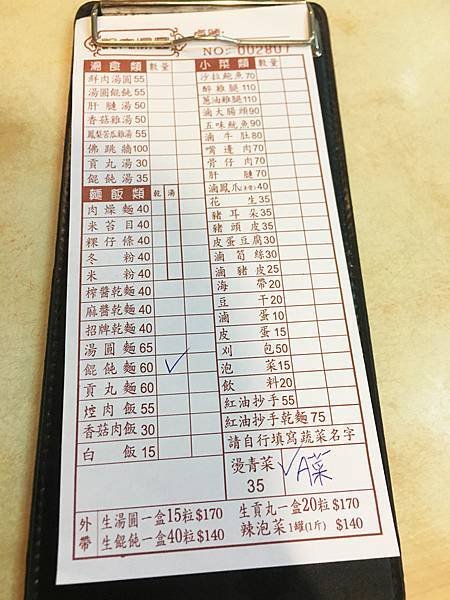 NO: 002807
湯食類 數量
鮮肉湯圓55
湯圓餛飩55
肝膁湯50
香菇雞湯50
鳳梨苦瓜雞湯55
佛跳牆100
貢丸湯30
餛飩湯35
麵飯類 乾 湯
肉燥麵40
米苔目40
粿仔條40
冬粉40
米粉40
榨醬乾麵40
麻醬乾麵40
招牌乾麵40
湯圓麵65
餛飩麵60 ✓
貢丸麵60
焢肉飯55
香菇肉飯30
白飯15
小菜類 數量
沙拉鮑魚70
醉雞腿110
蔥油雞腿110
滷大腸頭90
五味魷魚90
滷牛肚80
嘴邊肉70
骨仔肉70
肝膁70
滷鳳爪40
花生35
豬耳朵35
豬頭皮35
皮蛋豆腐30
滷筍絲30
滷豬皮25
海帶20
豆干20
滷蛋10
皮蛋15
刈包50
泡菜15
飲料20
紅油抄手55
紅油抄手乾麵75
請自行填寫蔬菜名字
燙青菜 35 ✓A菜
外帶
生湯圓一盒15粒$170 生貢丸一盒20粒$170
生餛飩一盒40粒$140 辣泡菜1罐(1斤) $140